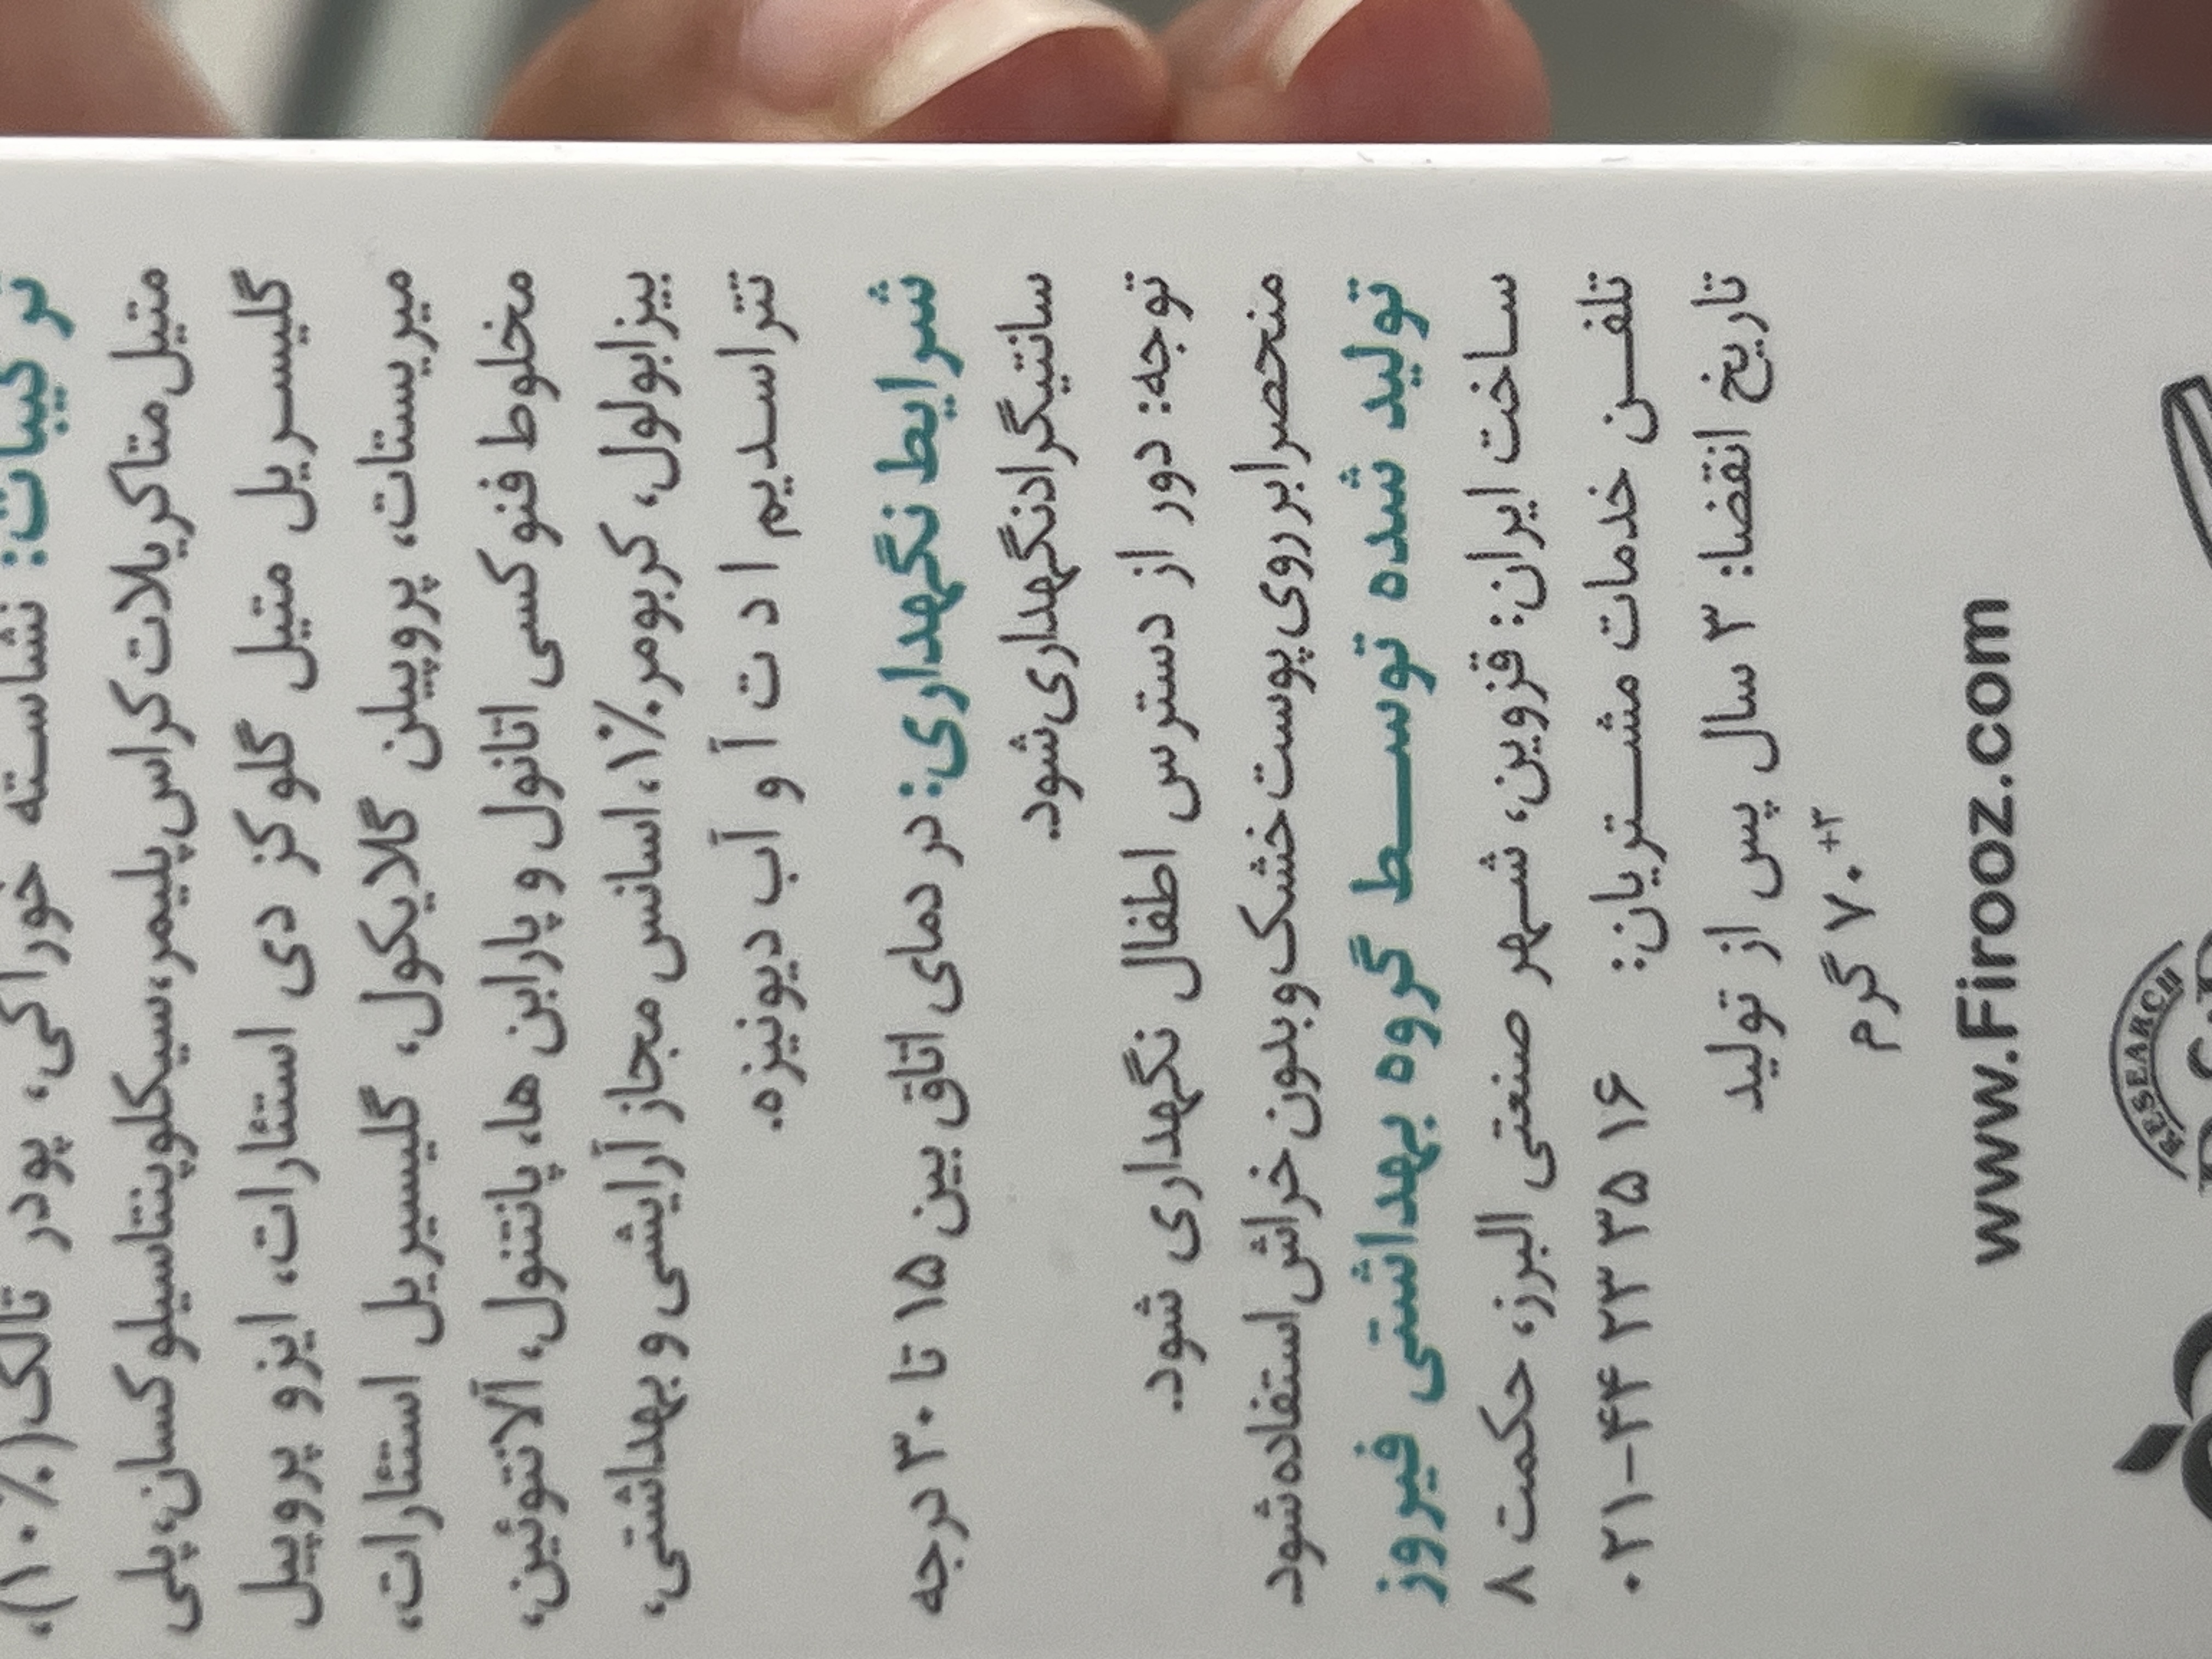 ترکیبات: نشاسته خوراکی، پودر تالک(۱۰٪)،
متیل متاکریلات کراس پلیمر، سیکلوپنتاسیلوکسان، پلی
گلیسریل متیل گلوکز دی استئارات، ایزو پروپیل
میریستات، پروپیلن گلایکول، گلیسیریل استئارات،
مخلوط فنوکسی اتانول و پارابن ها، پانتنول، آلانتوئین،
بیزابولول، کربومر۱٪، اسانس مجاز آرایشی و بهداشتی،
تتراسدیم ا د ت آ و آب دیونیزه.
شرایط نگهداری: در دمای اتاق بین ۱۵ تا ۳۰ درجه
سانتیگراد نگهداری شود.
توجه: دور از دسترس اطفال نگهداری شود.
منحصرا بر روی پوست خشک و بدون خراش استفاده شود
تولید شده توسط گروه بهداشتی فیروز
ساخت ایران: قزوین، شهر صنعتی البرز، حکمت ۸
تلفن خدمات مشتریان: ۰۲۱-۴۴ ۲۳ ۳۵ ۱۶
تاریخ انقضا: ۳ سال پس از تولید
۷۰ +۳ گرم
www.Firooz.com
RESEARCH